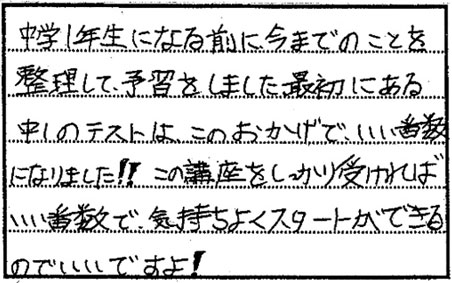 中学1年生になる前に、今までのことを
整理して、予習をしました。最初にある
中1のテストは、このおかげで、いい番数
になりました!! この講座をしっかり受ければ
いい番数で、気持ちよくスタートができる
のでいいですよ!